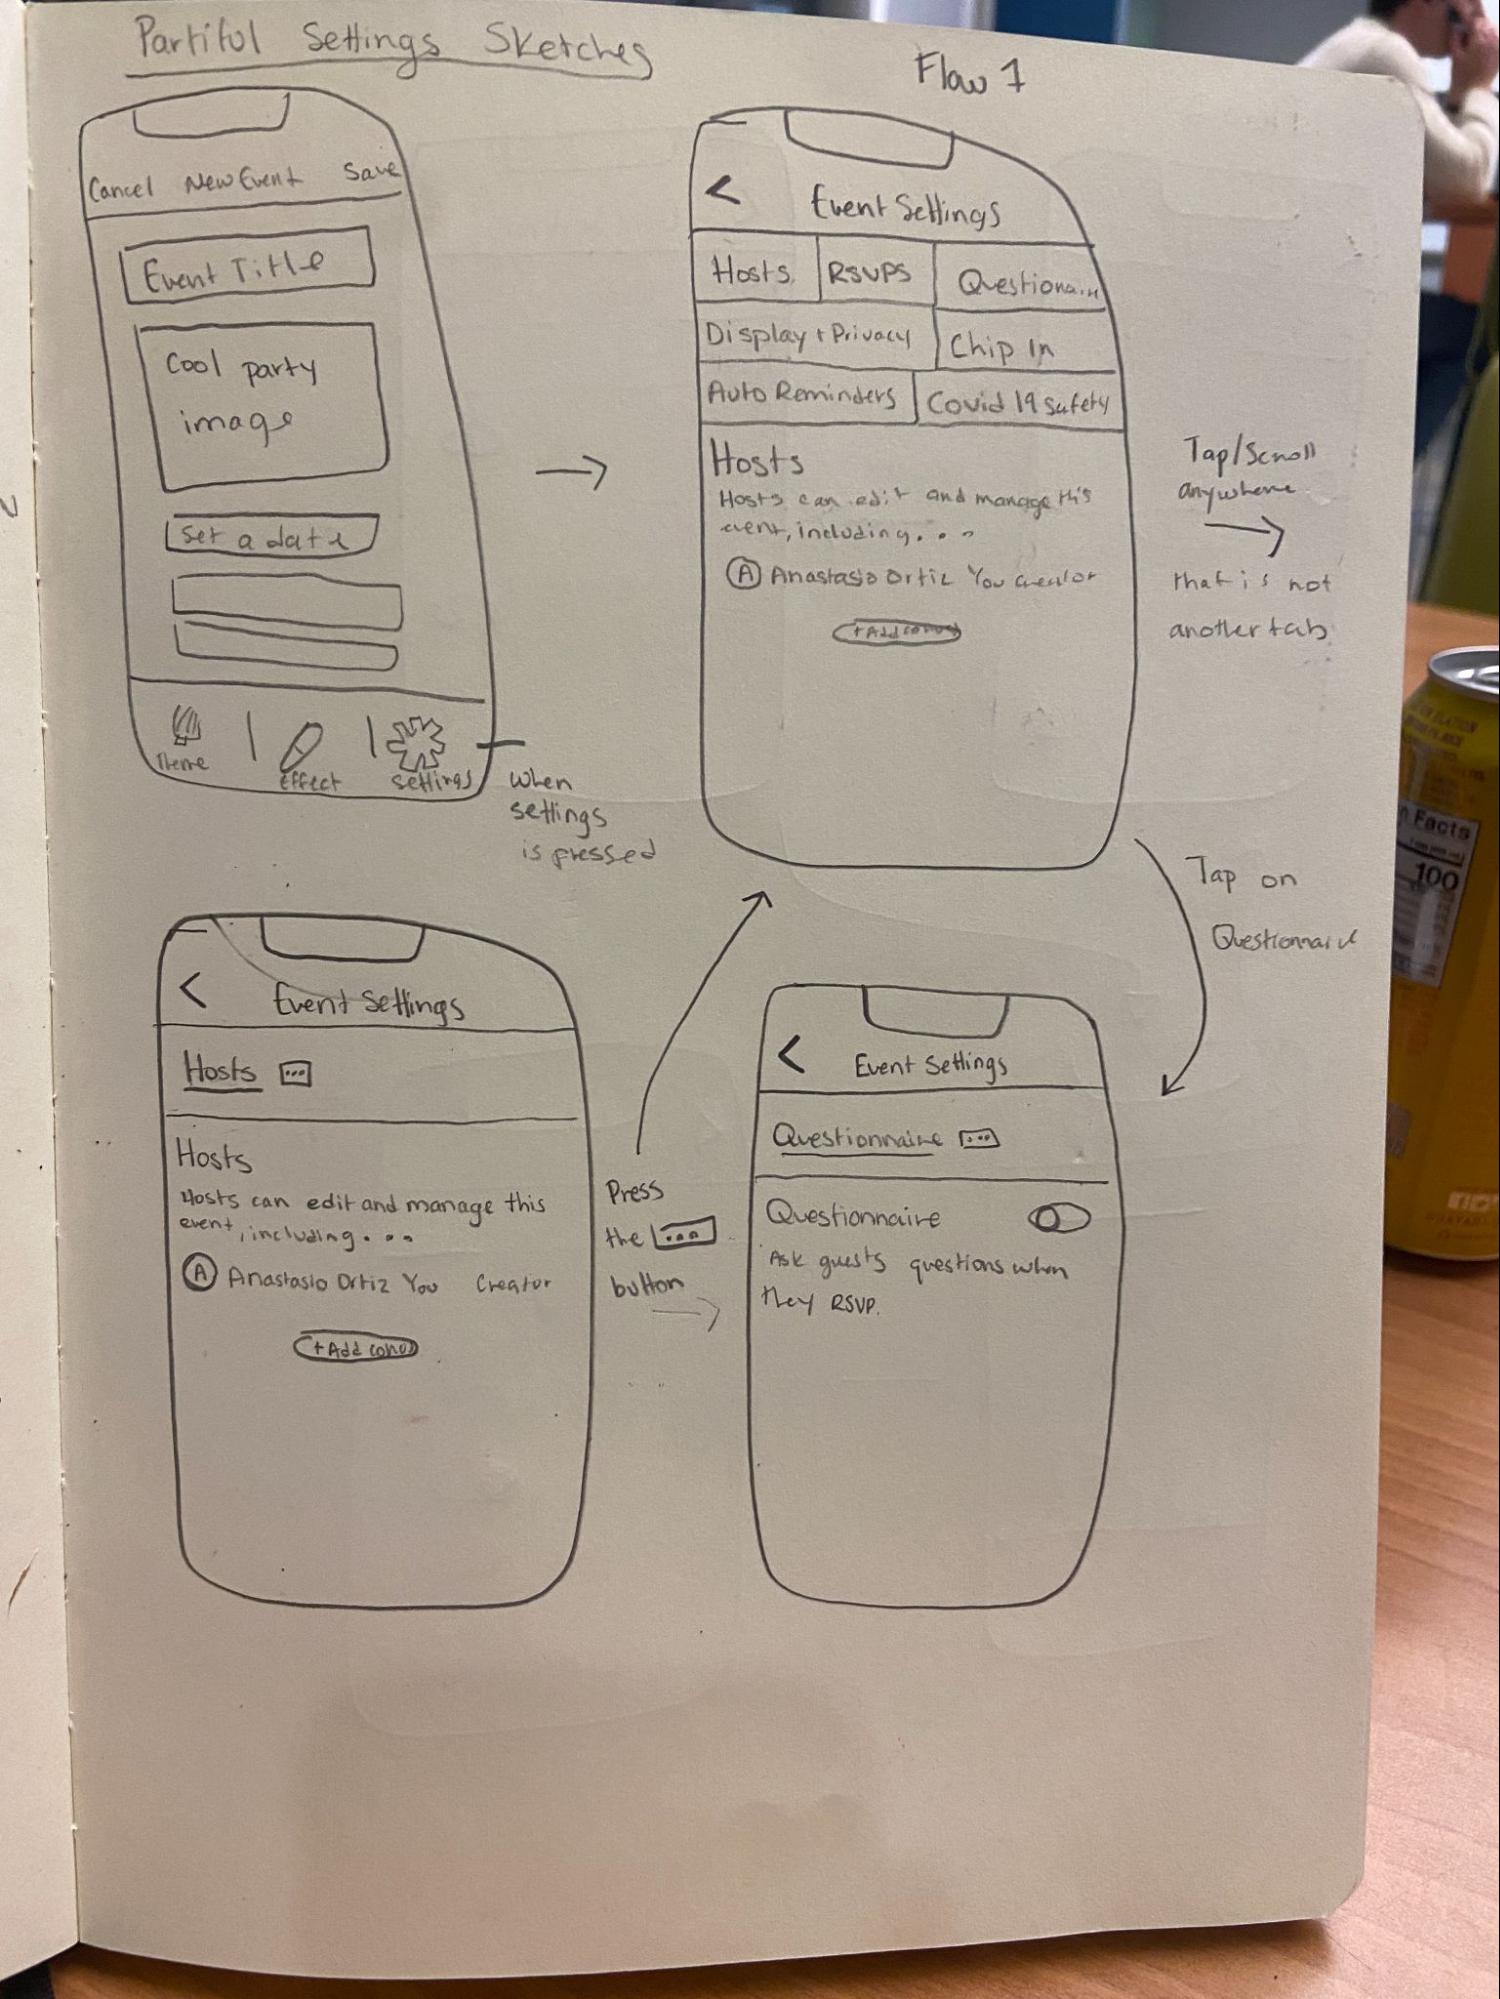 Partiful Settings Sketches
Flow 1
Cancel New Event Save
Event Title
Cool party
image
Set a date
Theme
Effect
Settings
when
settings
is pressed
< Event Settings
Hosts RSVPS Questionaire
Display + Privacy Chip In
Auto Reminders Covid 19 Safety
Hosts
Hosts can edit and manage this
event, including...
A Anastasio Ortiz You Creator
+ Add
Tap/Scroll
anywhere
that is not
another tab
Tap on
Questionnaire
< Event Settings
Hosts ...
Hosts
Hosts can edit and manage this
event, including...
A Anastasio Ortiz You Creator
+ Add
Press
the ...
button
< Event Settings
Questionnaire ...
Questionnaire
Ask guests questions when
they RSVP.
n Facts
100